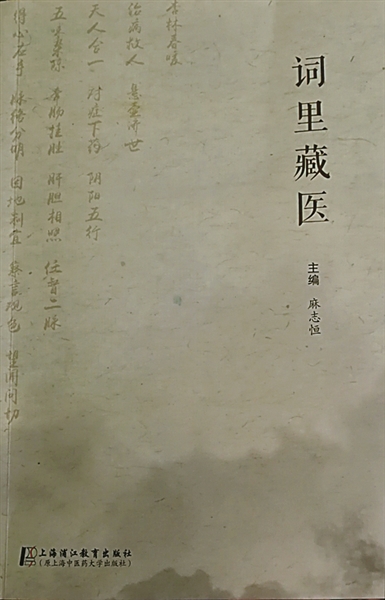 词里藏医
主编 麻志恒
杏林春暖
治病救人 悬壶济世
天人合一 对症下药 阴阳五行
五味杂陈 牵肠挂肚 肝胆相照 任督二脉
得心应手 脉络分明 因地制宜 察言观色 望闻问切
上海浦江教育出版社
(原上海中医药大学出版社)